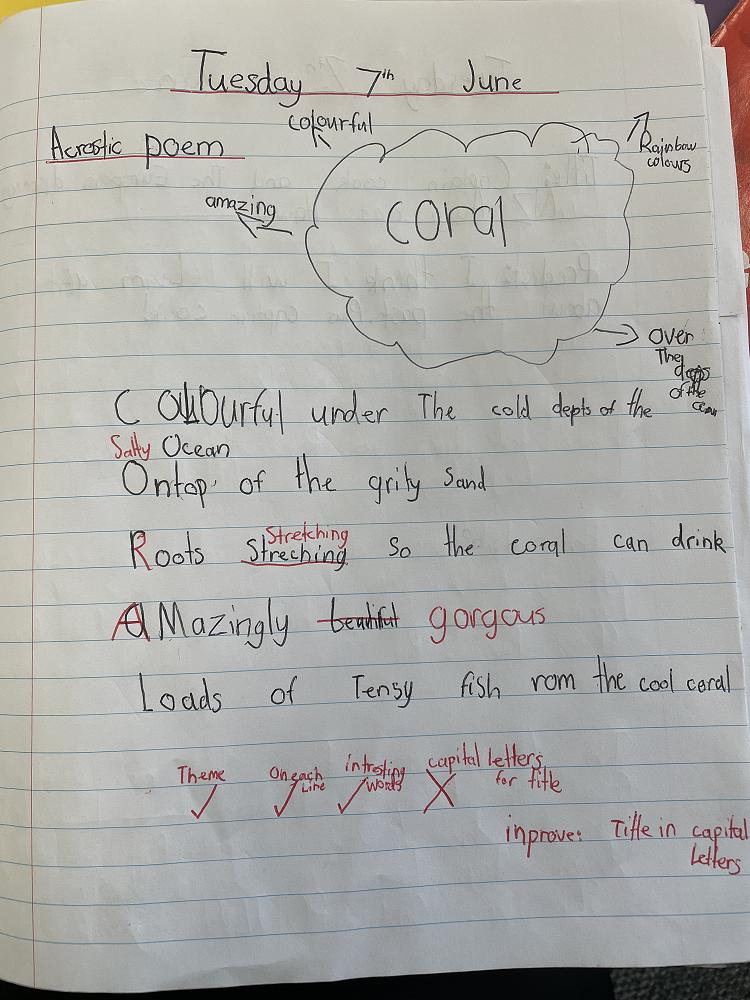 Tuesday 7th June
colourful
Acrostic poem
Rainbow
colours
amazing
coral
over
The
deps
of the
ocean
Colourful under The cold depts of the
Salty Ocean
Ontop of the grity sand
Stretching
Roots Streching so the coral can drink
AMazingly beautiful gorgous
Loads of Tensy fish rom the cool coral
Theme
On each
Line
intresting
words
capital letters
for title
inprove: Title in capital
letters